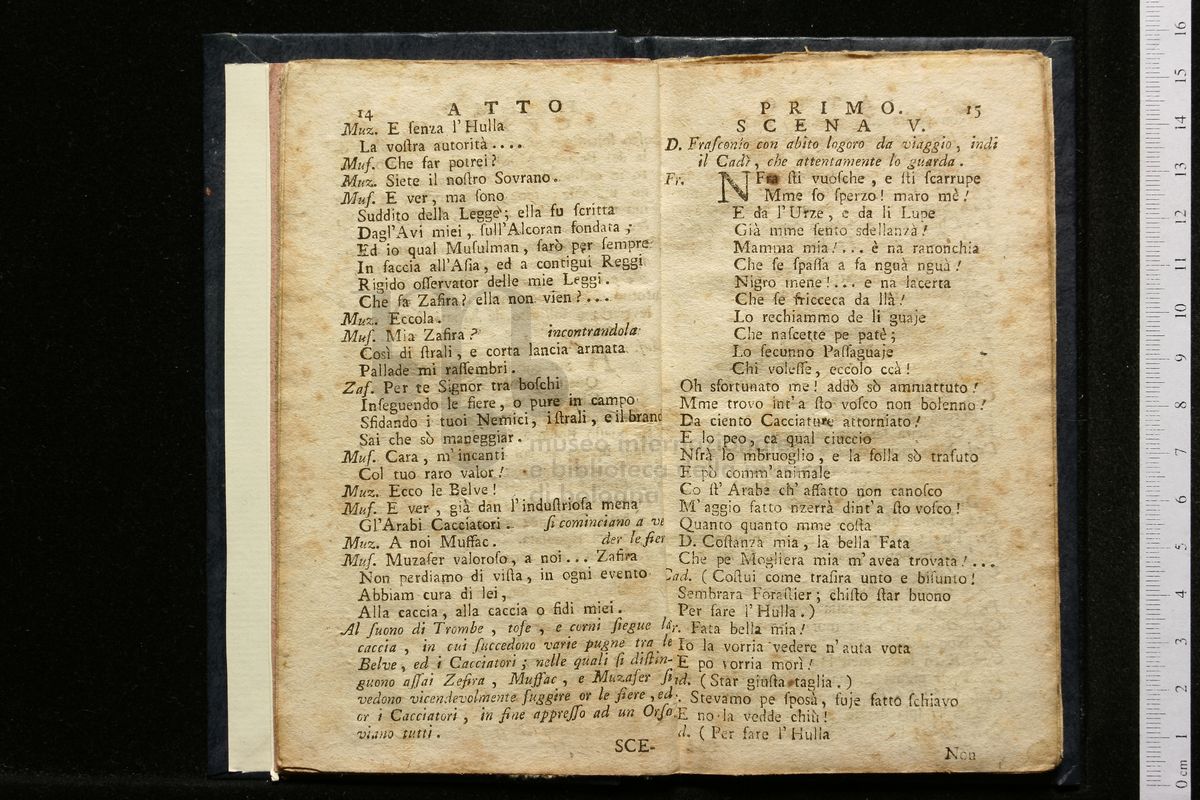 14 ATTO
Muz. E ſenza l'Hulla
La voſtra autorità....
Muſ. Che far potrei?
Muz. Siete il noſtro Sovrano.
Muſ. E ver, ma ſono
Suddito della Legge; ella fu ſcritta
Dagl'Avi miei, ſull'Alcoran fondata;
Ed io qual Muſulman, ſarò per ſempre
In faccia all'Aſia, ed a contigui Reggi
Rigido oſſervator delle mie Leggi.
Che fa Zafira? ella non vien?...
Muz. Eccola.
Muſ. Mia Zafira? incontrandola
Così di ſtrali, e corta lancia armata
Pallade mi raſſembri.
Zaf. Per te Signor tra boſchi
Inſeguendo le fiere, o pure in campo
Sfidando i tuoi Nemici, i ſtrali, e il brand
Sai che sò maneggiar.
Muſ. Cara, m'incanti
Col tuo raro valor!
Muz. Ecco le Belve!
Muſ. E ver, già dan l'induſtrioſa mena
Gl'Arabi Cacciatori. ſi cominciano a ve
Muz. A noi Muſſac. der le fier
Muſ. Muzafer valoroſo, a noi... Zafira
Non perdiamo di viſta, in ogni evento
Abbiam cura di lei,
Alla caccia, alla caccia o fidi miei.
Al ſuono di Trombe, toſe, e corni ſiegue la
caccia, in cui ſuccedono varie pugne tra le
Belve, ed i Cacciatori; nelle quali ſi diſtin-
guono aſſai Zefira, Muſſac, e Muzafer ſi
vedono vicendevolmente fuggire or le fiere, ed
or i Cacciatori, in fine appreſſo ad un Orſo
viano tutti.
SCE-
PRIMO. 15
SCENA V.
D. Fraſconio con abito logoro da viaggio, indi
il Cadì, che attentamente lo guarda.
Fr. NFra ſti vuoſche, e ſti ſcarrupe
Mme ſo ſperzo! maro mè!
E da l'Urze, e da li Lupe
Già mme ſento sdellanzà!
Mamma mia!... è na ranonchia
Che ſe ſpaſſa a fa nguà nguà!
Nigro mene!... e na lacerta
Che ſe fricceca da llà!
Lo rechiammo de li guaje
Che naſcette pe patè;
Lo ſecunno Paſſaguaje
Chi voleſſe, eccolo ccà!
Oh sfortunato me! addò sò ammattuto!
Mme trovo int'a ſto voſco non bolenno!
Da ciento Cacciature attorniato!
E lo peo, ca qual ciuccio
Nſrà lo mbruoglio, e la folla sò traſuto
E pò comm'animale
Co ſt'Arabe ch'affatto non canoſco
M'aggio fatto nzerrà dint'a ſto voſco!
Quanto quanto mme coſta
D. Coſtanza mia, la bella Fata
Che pe Mogliera mia m'avea trovata!...
Cad. (Coſtui come traſira unto e biſunto!
Sembrara Foraſtier; chiſto ſtar buono
Per fare l'Hulla.)
r. Fata bella mia!
Io la vorria vedere n'auta vota
E po vorria morì!
id. (Star giuſta taglia.)
. Stevamo pe ſpoſà, fuje fatto ſchiavo
E no la vedde chiù!
d. (Per fare l'Hulla
Non
museo internazionale
e biblioteca della musica
di bologna